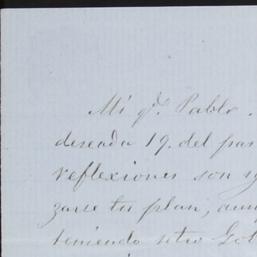 Mi q.do Pablo.
deseada 19. del pas
reflexiones son
zarse tu plan, aun
teniendo otro